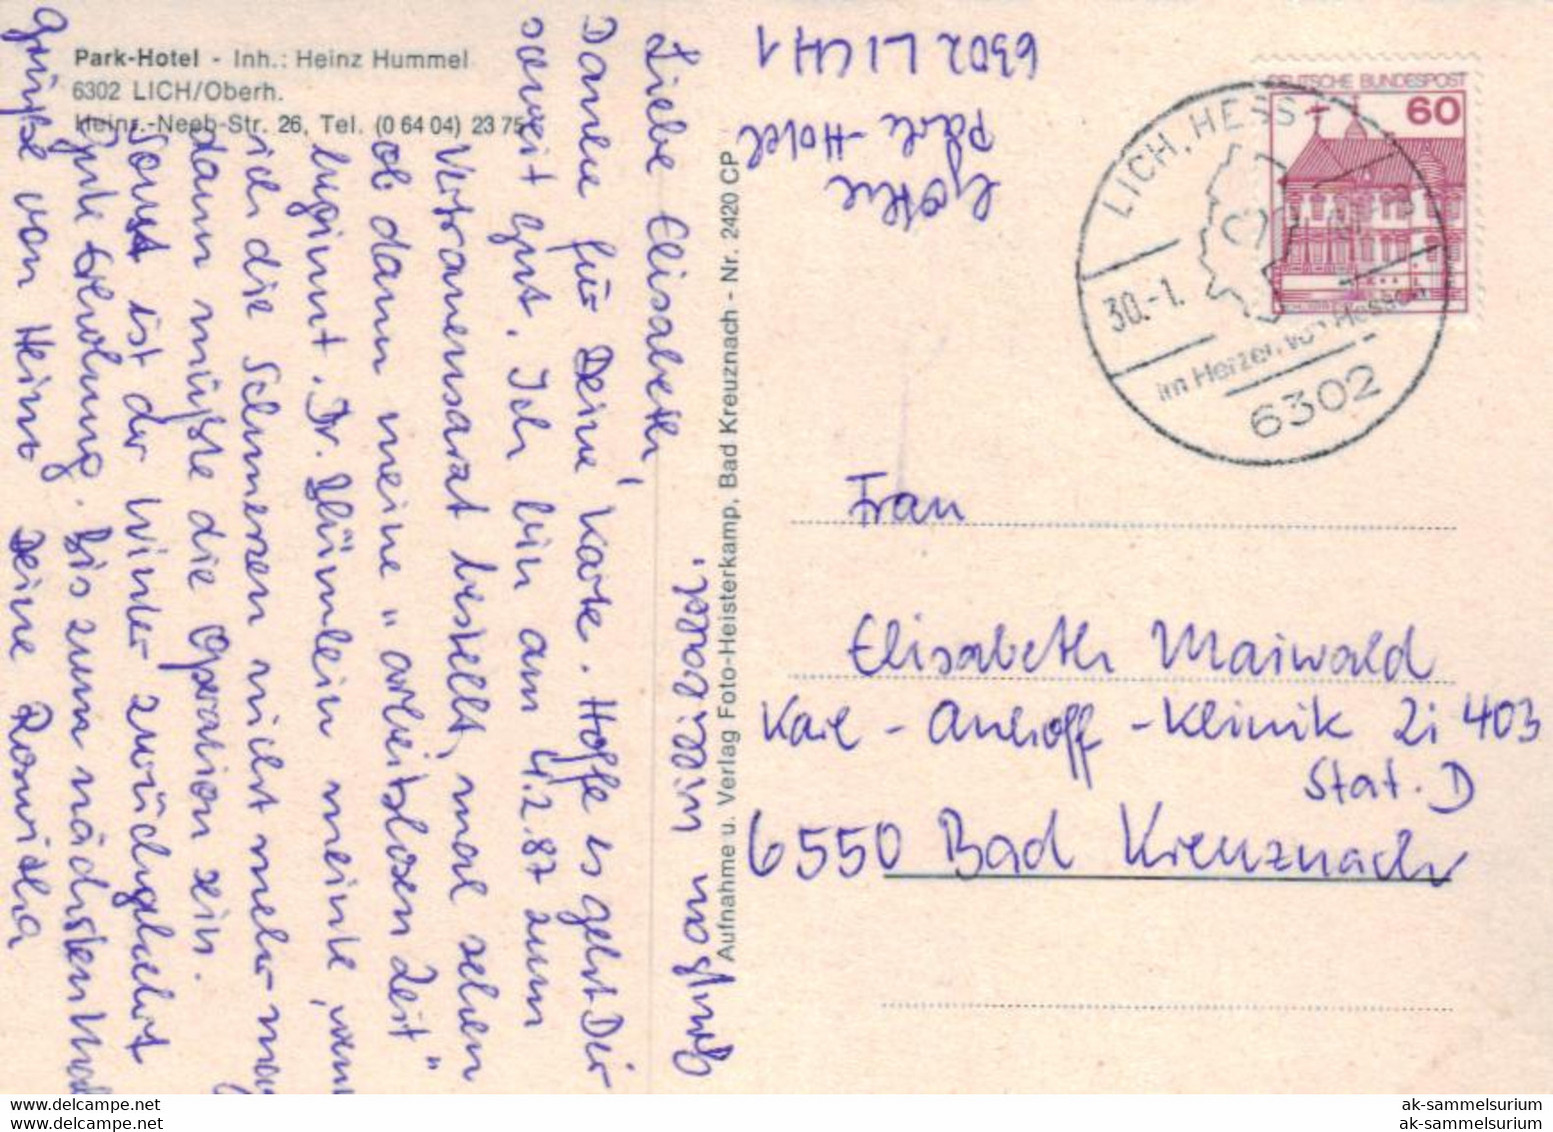 Park-Hotel - Inh.: Heinz Hummel
6302 LICH/Oberh.
Heinr.-Neeb-Str. 26, Tel. (0 64 04) 23 75
Liebe Elisabeth,
Danke für Deine Karte. Hoffe es geht Dir
soweit gut. Ich bin am 4.2.87 zum
Vertrauensarzt bestellt, mal sehen
ob dann meine "arbeitslosen Zeit"
beginnt. Dr. Blümlein meinte, wenn
ich die Schmerzen nicht mehr mag
dann müßte die Operation sein.
Sonst ist der Winter zurückgekehrt
Gute Erholung. Bis zum nächsten Mal
Grüße von Heinz Deine Roswitha
Gruß an
Aufnahme u. Verlag Foto-Heisterkamp, Bad Kreuznach - Nr. 2420 CP
Park-Hotel
6302 LICH 1
DEUTSCHE BUNDESPOST
60
LICH, HESS 1
30.-1.
im Herzen von Hessen
6302
Frau
Elisabeth Maiwald
Karl - Aschoff - Klinik Zi 403
Stat. D
6550 Bad Kreuznach
www.delcampe.net
www.delcampe.net
ak-sammelsurium
ak-sammelsurium